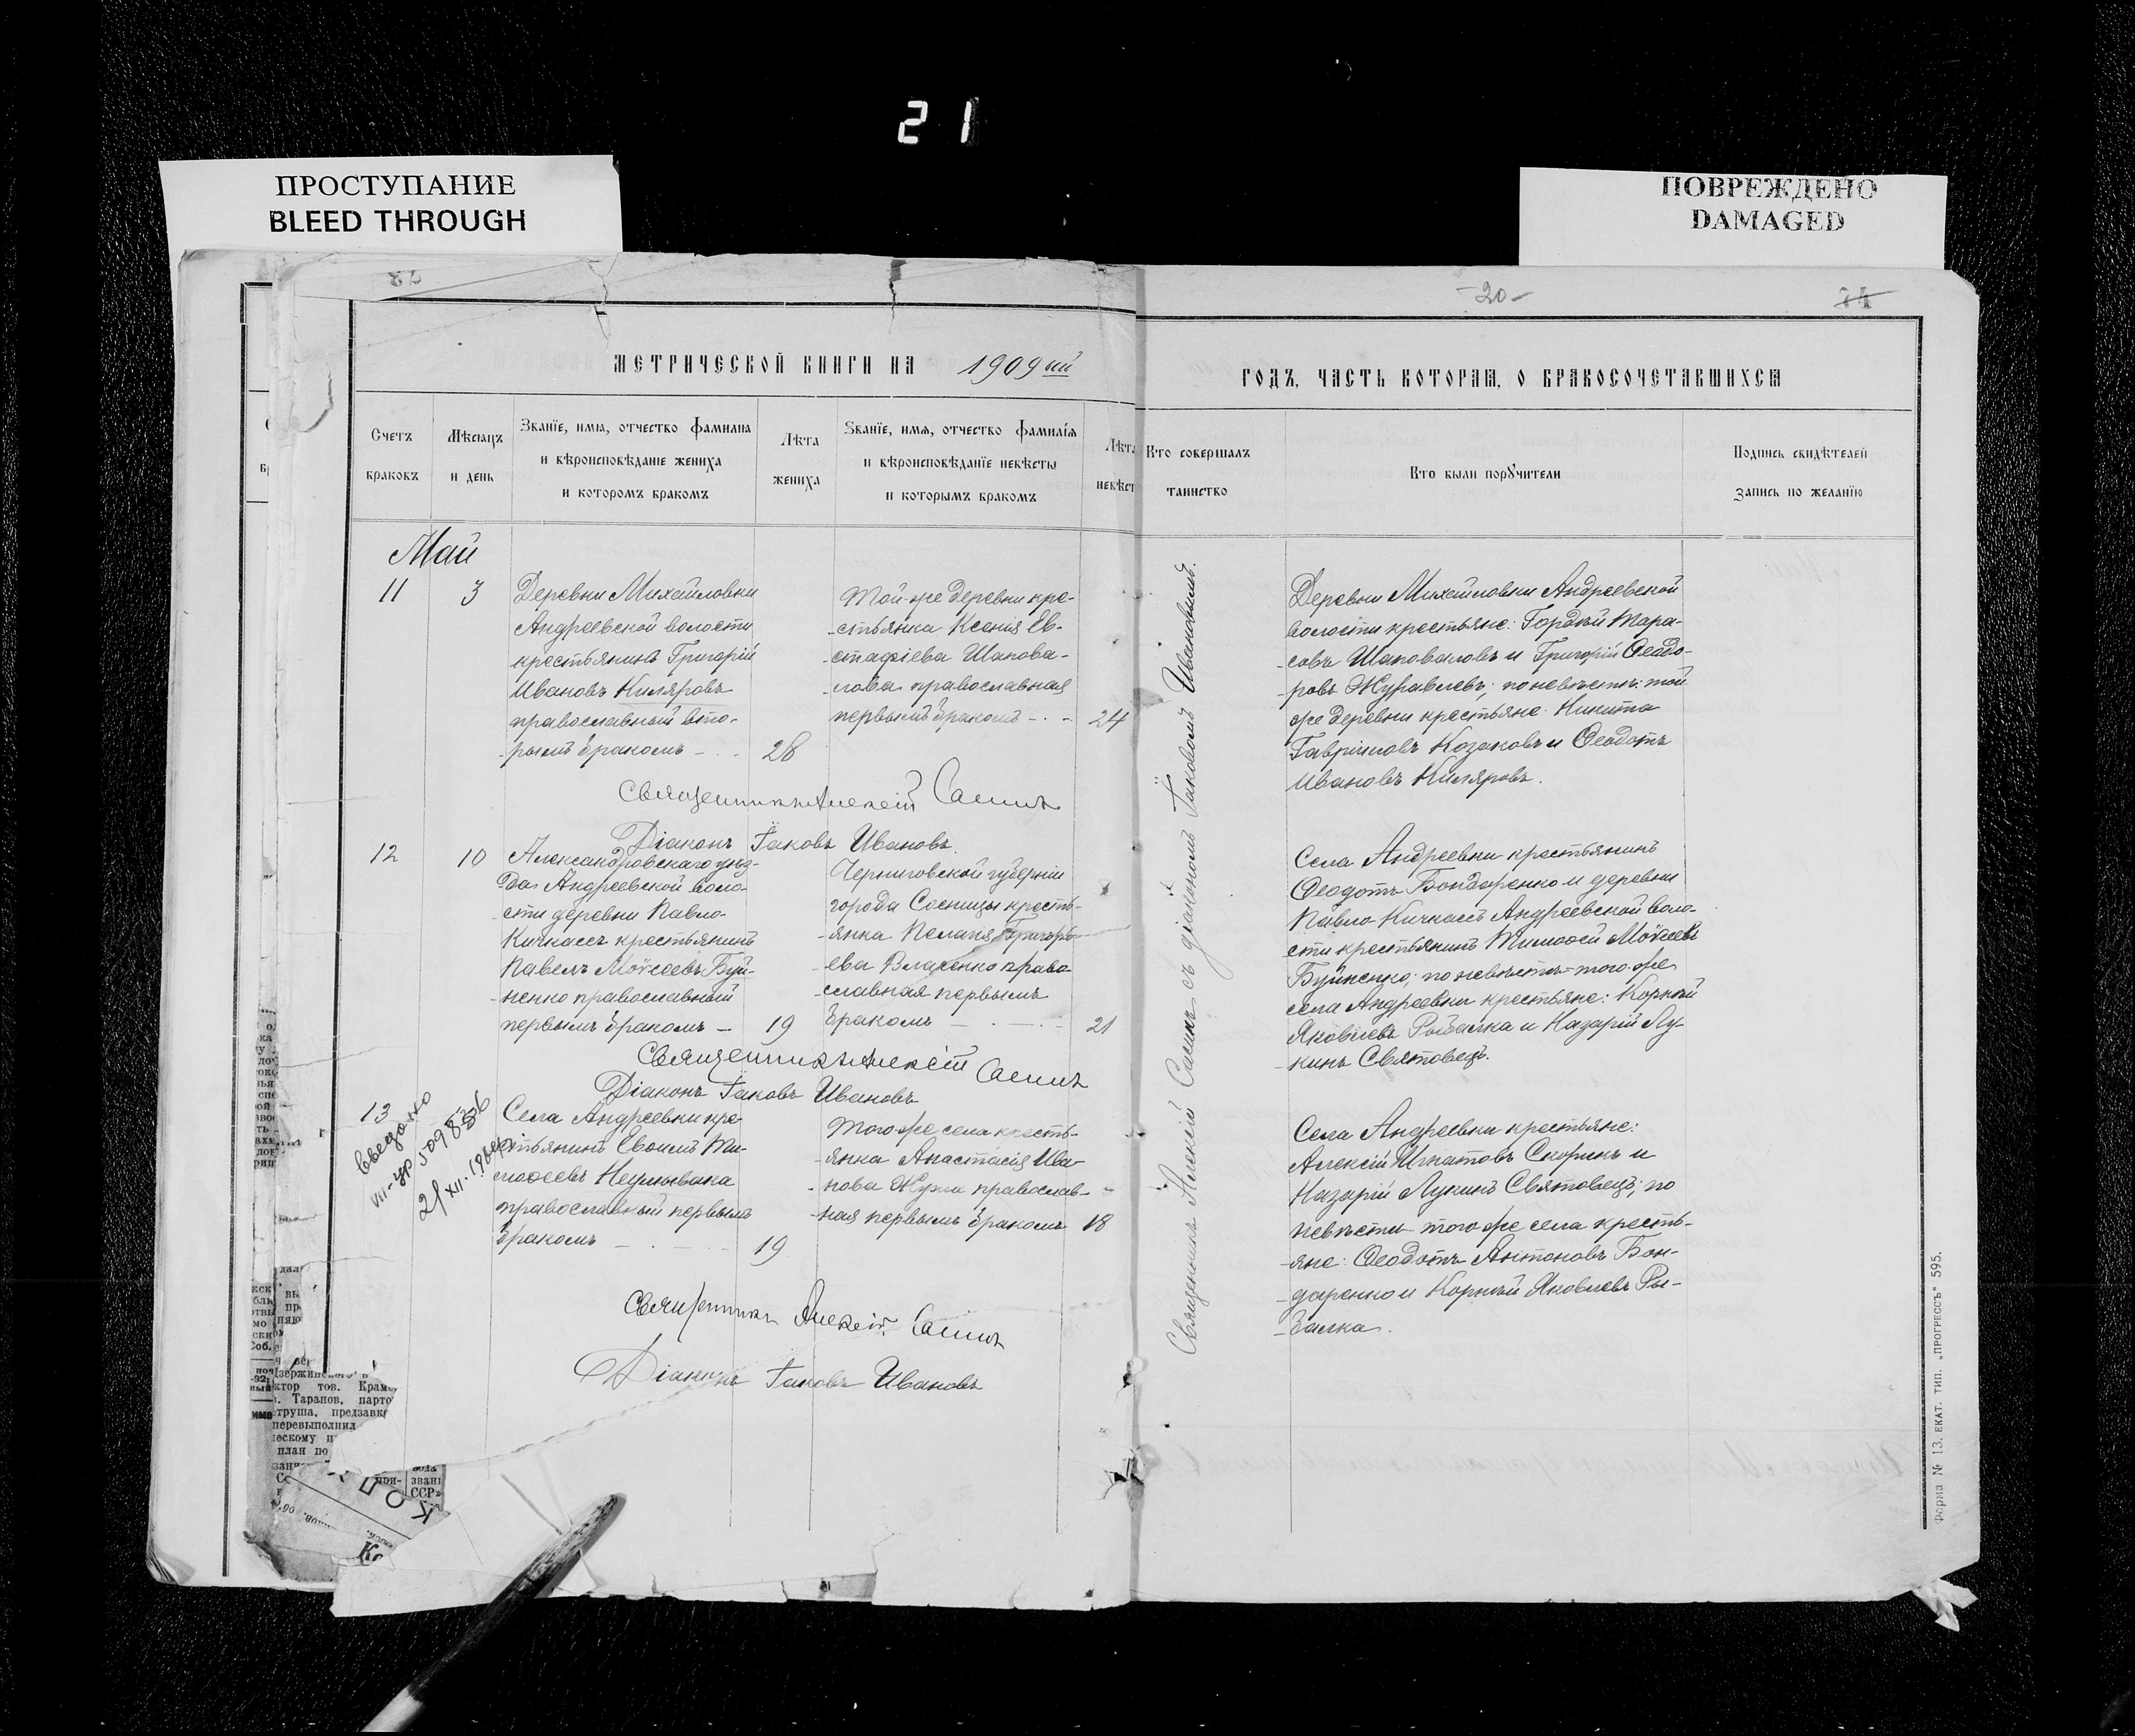 21
ПРОСТУПАНИЕ
BLEED THROUGH
ПОВРЕЖДЕНО
DAMAGED
-20-
МЕТРИЧЕСКОЙ КНИГИ НА 1909ый
ГОДЪ, ЧАСТЬ ВТОРАЯ, О БРАКОСОЧЕТАВШИХСЯ
Счетъ браковъ
Мѣсяцъ и день
Званїе, имя, отчество фамилиа
и вѣроисповѣданіе жениха
и которомъ бракомъ
Лѣта жениха
Званїе, имя, отчество фамилїя
и вѣроисповѣданїе невѣсты
и которымъ бракомъ
Лѣта невѣст
Кто совершалъ таинство
Кто были порꙋчители
Подпись свидѣтелей
запись по желанїю
Май
11 3
Деревни Михайловки
Андреевской волости
крестьянинъ Григорій
Ивановъ Киляровъ
православный вто-
-рымъ бракомъ 28
Той-же деревни кре-
-стьянка Ксенія Ев-
-стафіева Шапова-
-лова православная
первымъ бракомъ 24
Деревни Михайловки Андреевской
волости крестьяне: Гордѣй Тара-
-совъ Шаповаловъ и Григорій Ѳеодо-
-ровъ Журавлевъ; по невѣстѣ: той
же деревни крестьяне: Никита
Гавріиловъ Козаковъ и Ѳеодотъ
Ивановъ Киляровъ.
Священникъ Алексій Саминъ
Діаконъ Іаковъ Ивановъ.
12 10
Александровскаго уѣз-
да Андреевской воло-
-сти деревни Павло-
Кичкассъ крестьянинъ
Павелъ Моѵсеевъ Буй-
-ненко православный
первымъ бракомъ — 19
Черниговской губерніи
города Сосницы кресть-
-янка Пелагія Григорь-
-ева Власенко право-
-славная первымъ
бракомъ 21
Села Андреевки крестьянинъ
Ѳеодотъ Бондаренко и деревни
Павло-Кичкассъ Андреевской воло-
сти крестьянинъ Тимоѳей Моѵсеевъ
Буйненко; по невѣстѣ-того-же
села Андреевки крестьяне: Корній
Яковлевъ Рыбалка и Назарій Лу-
-кинъ Святовецъ.
Священникъ Алексій Саминъ
Діаконъ Іаковъ Ивановъ
13
Села Андреевки кре-
стьянинъ Евѳимъ Ти-
-моѳеевъ Неумывака
православный первымъ
бракомъ 19
Того же села кресть-
-янка Анастасія Ива-
-нова Жужа православ-
-ная первымъ бракомъ 18
Села Андреевки крестьяне:
Алексій Игнатовъ Скорикъ и
Назарій Лукинъ Святовецъ; по
невѣстѣ-того же села кресть-
-яне: Ѳеодотъ Антоновъ Бон-
-даренко и Корній Яковлевъ Ры-
-балка.
Священникъ Алексій Саминъ
Діаконъ Іаковъ Ивановъ
Священникъ Алексій Саминъ съ діакономъ Іаковомъ Ивановымъ.
ктор тов.
Таранов, парто
перевыполнил
план по
Форма № 13. ЕКАТ. ТИП. „ПРОГРЕССЪ" 595.